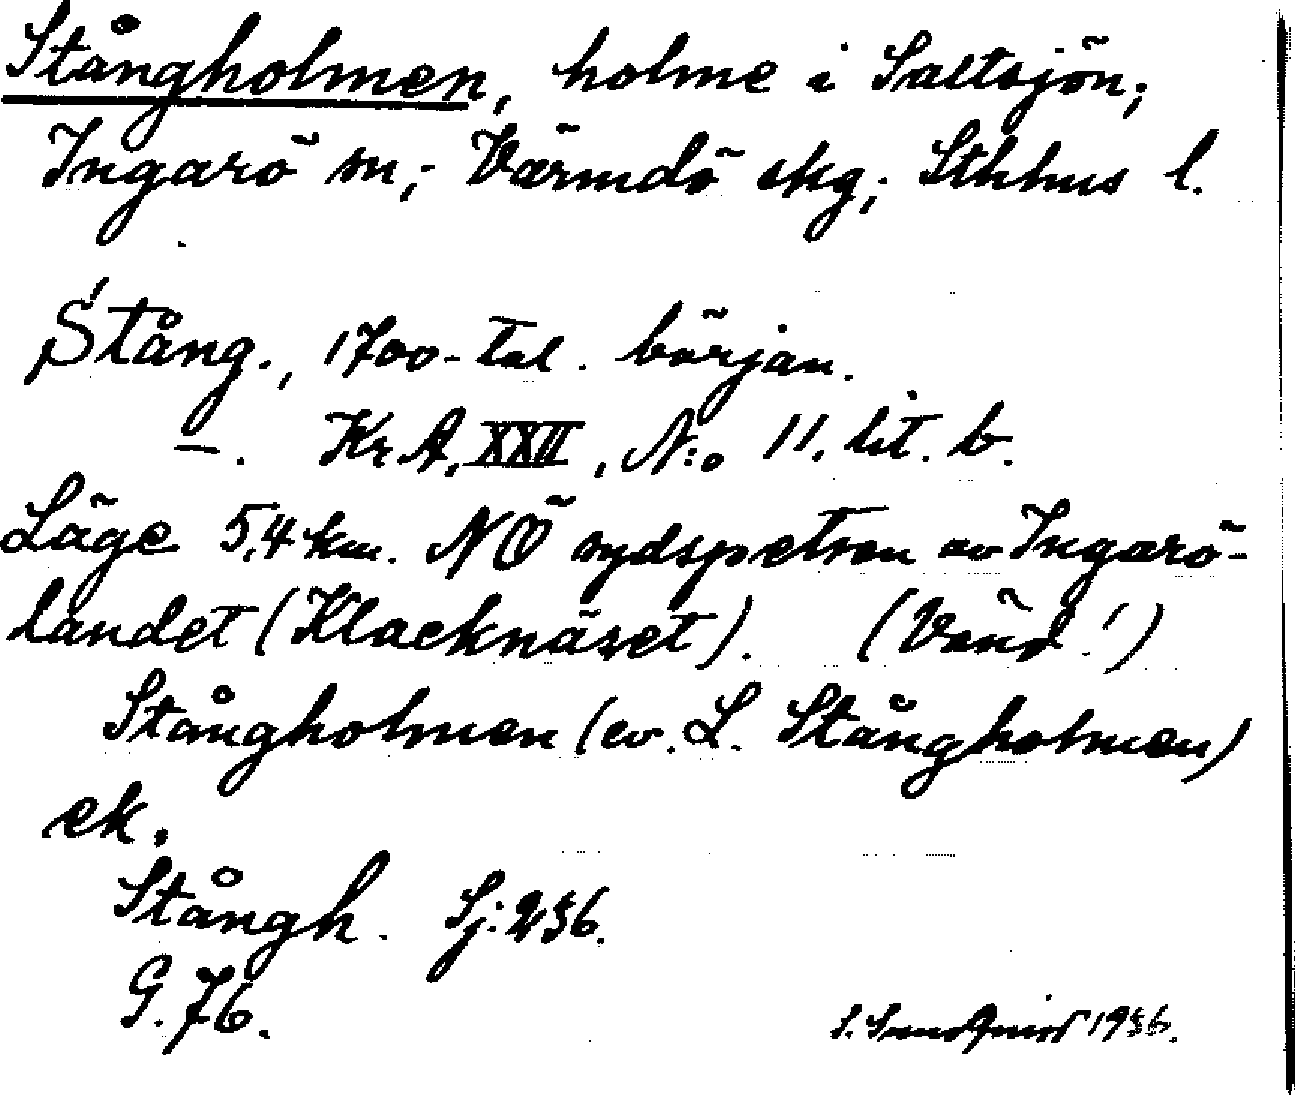 Stångholmen, holme i Saltsjön;
Ingarö sn; Värmdö skg; Sthlms l.
Stång., 1700-tal. början.
—. Kr. A. XXII, N:o 11. lit. b.
Läge 5,4 km. NÖ sydspetsen av Ingarö-
landet (Klacknäset). (Vänd!)
Stångholmen (ev. L. Stångholmen)
ek.
Stångh. Sj: 236.
G. 76.
S. 1936.